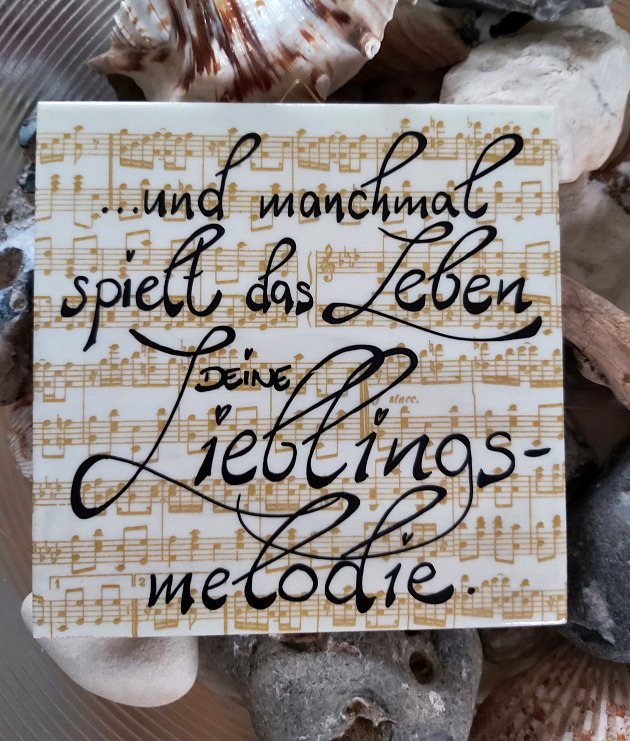 ...und manchmal
spielt das Leben
DEINE
Lieblings-
melodie.
stacc.